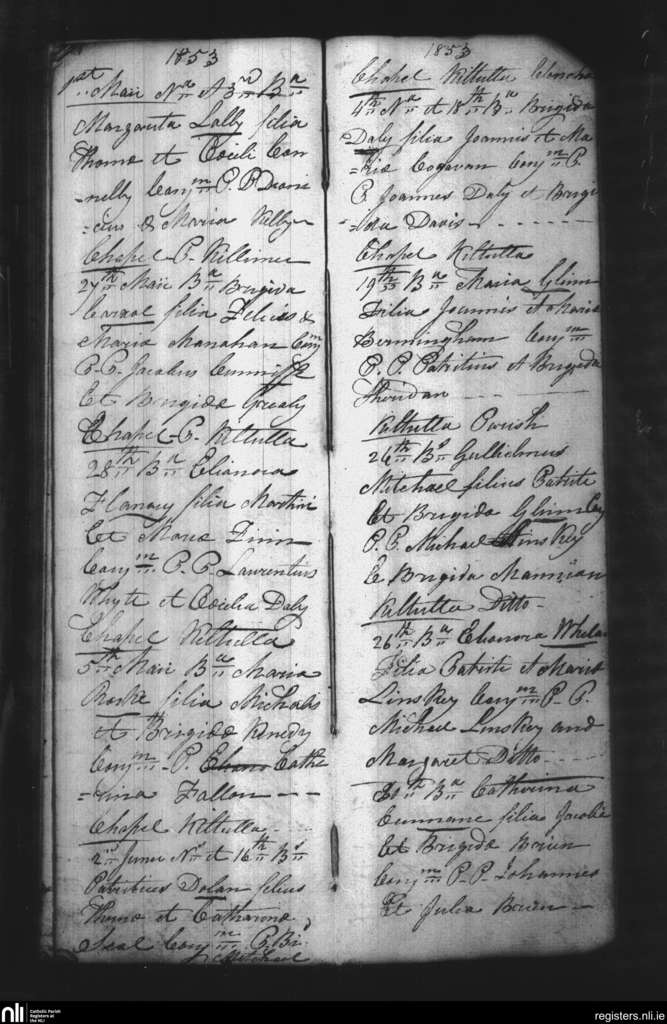 1853
1st Maii Na et 3rd Ba
Margarita Lally filia
Thome et Cecili Con
=nelly Conjm P.P. Dioni
=cius & Maria Kelly
Chapel P. Killimer
27th Maii Ba Brigida
Carrol filia Felicis &
Maria Manahan Conjm
P.P. Jacobus Cunniffe
Et Brigida Grealy
Chapel P. Kiltulla
28th Ba Elianora
Flanary filia Martini
Et Maria Finn
Conjm P.P. Laurentius
Whyte et Cecilia Daly
Chapel Kiltulla
5th Maii Ba Maria
Roarke filia Michalis
et Brigida Kenedy
Conjm P. Cathe
=rina Fallon
Chapel Kiltulla
2nd Junii Ns et 16th Bs
Patritius Dolan filius
Thome et Catharina
Conjm P. Bri
Mitchael
1853
Chapel Kiltulla
4th Na et 18th Ba Brigida
Daly filia Joannis et Ma
=ria Cogavan Conjm P.
P. Joannes Daly et Brigi
=da Davis
Chapel Kiltulla
19th Ba Maria Glinn
Filia Joannis et Maria
Bermingham Conjm
P.P. Patritius et Brigida
Sheridan
Kiltulla Parish
24th Bs Gullielmus
Mitchael filius Patriti
Et Brigida Glinn Conj
P.P. Michael Linskey
E Brigida Mannion
Kiltulla Ditto
26th Ba Elianora Whelan
Filia Patriti et Maria
Linskey Conjm P.P.
Michael Linskey and
Margaret Ditto
Ba Catharina
Cunnane filia Jacobi
Et Brigida Brien
Conjm P.P. Johannes
Et Julia Brien
nli
Catholic Parish
Registers at
the NLI
registers.nli.ie